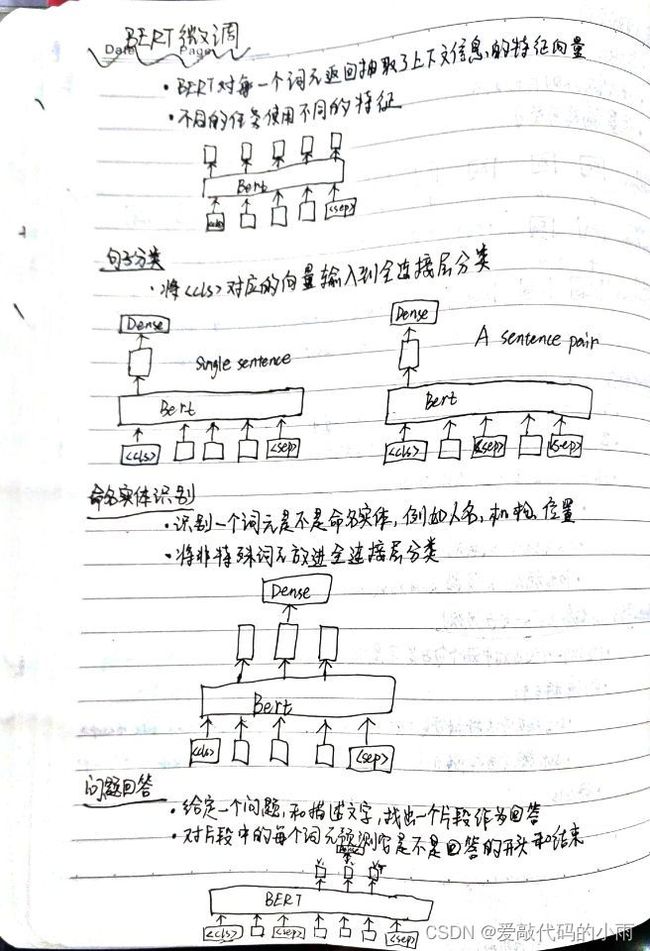 BERT微调
Date Page
·BERT对每一个词元返回抽取了上下文信息的特征向量
·不同的任务使用不同的特征
Bert
<cls> <sep>
句子分类
·将<cls>对应的向量输入到全连接层分类
Dense Dense
Single sentence A sentence pair
Bert Bert
<cls> <sep> <cls> <sep> <sep>
命名实体识别
·识别一个词元是不是命名实体，例如人名，机构，位置
·将非特殊词元放进全连接层分类
Dense
Bert
<cls> <sep>
问题回答
·给定一个问题，和描述文字，找出一个片段作为回答
·对片段中的每个词元预测它是不是回答的开头和结束
BERT
<cls> <sep> <sep>
CSDN @爱敲代码的小雨